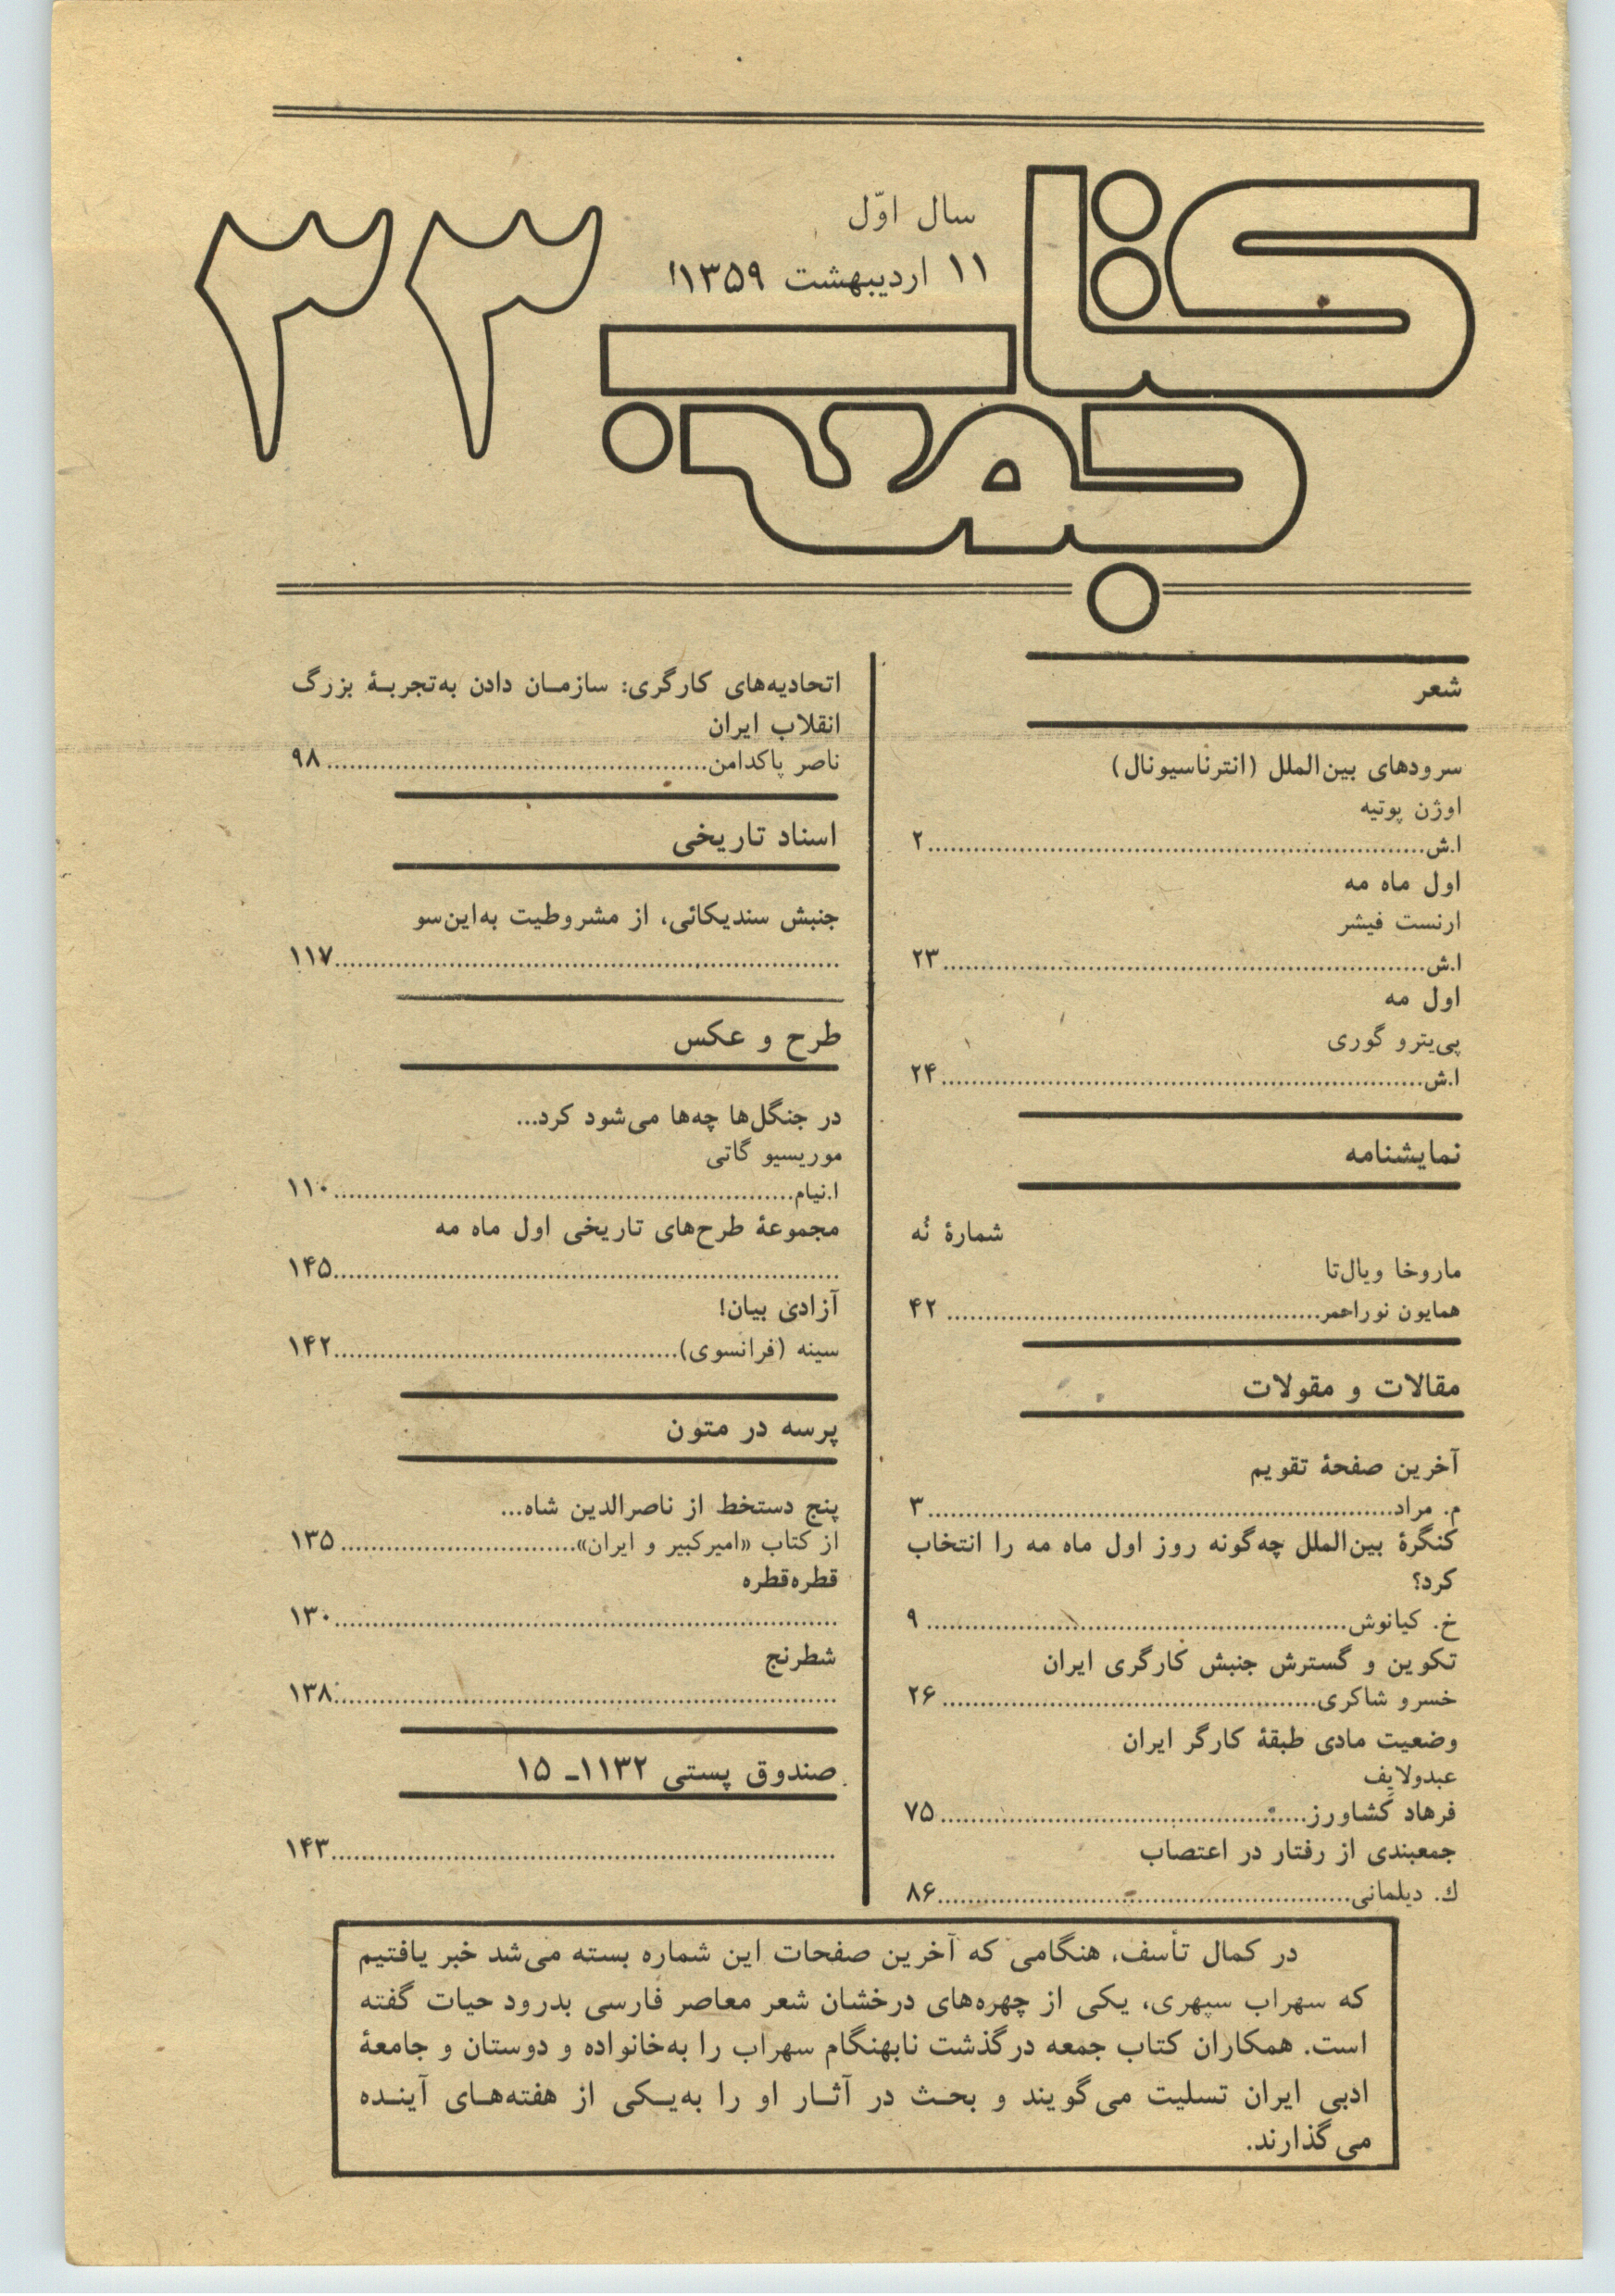 کتاب
جمعه
۳۳
سال اوّل
۱۱ اردیبهشت ۱۳۵۹
شعر
سرودهای بین‌الملل (انترناسیونال)
اوژن پوتیه
ا.ش........................................ ۲
اول ماه مه
ارنست فیشر
ا.ش........................................ ۲۳
اول مه
پی‌یترو گوری
ا.ش........................................ ۲۴
نمایشنامه
شمارهٔ نُه
ماروخا ویال‌تا
همایون نوراحمر........................................ ۴۲
مقالات و مقولات
آخرین صفحهٔ تقویم
م. مراد........................................ ۳
کنگرهٔ بین‌الملل چه‌گونه روز اول ماه مه را انتخاب
کرد؟
خ. کیانوش........................................ ۹
تکوین و گسترش جنبش کارگری ایران
خسرو شاکری........................................ ۲۶
وضعیت مادی طبقهٔ کارگر ایران
عبدولایِف
فرهاد کشاورز........................................ ۷۵
جمعبندی از رفتار در اعتصاب
ك. دیلمانی........................................ ۸۶
اتحادیه‌های کارگری: سازمـان دادن به‌تجربـهٔ بزرگ
انقلاب ایران
ناصر پاکدامن........................................ ۹۸
اسناد تاریخی
جنبش سندیکائی، از مشروطیت به‌این‌سو
........................................ ۱۱۷
طرح و عکس
در جنگل‌ها چه‌ها می‌شود کرد...
موریسیو گاتی
ا.نیام........................................ ۱۱۰
مجموعهٔ طرح‌های تاریخی اول ماه مه
........................................ ۱۴۵
آزادی بیان!
سینه (فرانسوی)........................................ ۱۴۲
پرسه در متون
پنج دستخط از ناصرالدین شاه...
از کتاب «امیرکبیر و ایران»........................................ ۱۳۵
قطره‌قطره
........................................ ۱۳۰
شطرنج
........................................ ۱۳۸
صندوق پستی ۱۱۳۲ـ ۱۵
........................................ ۱۴۳
در کمال تأسف، هنگامی که آخرین صفحات این شماره بسته می‌شد خبر یافتیم
که سهراب سپهری، یکی از چهره‌های درخشان شعر معاصر فارسی بدرود حیات گفته
است. همکاران کتاب جمعه درگذشت نابهنگام سهراب را به‌خانواده و دوستان و جامعهٔ
ادبی ایران تسلیت می‌گویند و بحـث در آثـار او را به‌یـکی از هفته‌هـای آینـده
می‌گذارند.